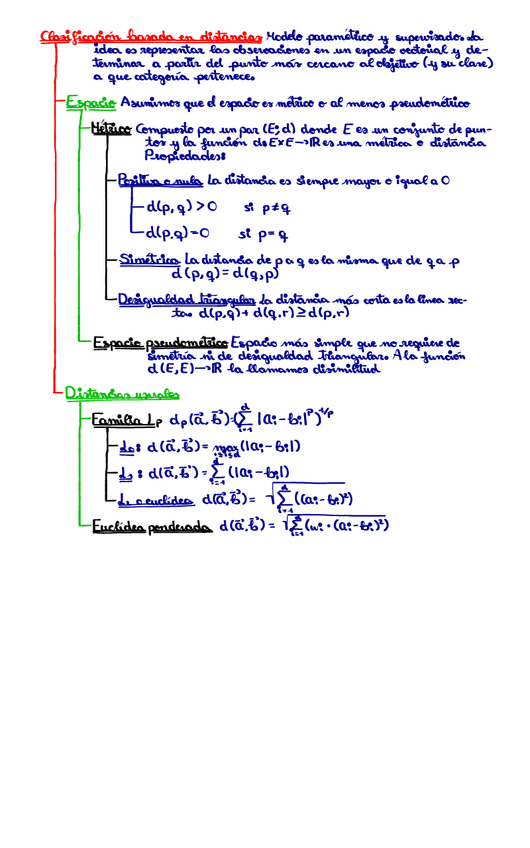 Clasificación basada en distancias Modelo paramétrico y supervisado. La
idea es representar las observaciones en un espacio vectorial y de-
terminar a partir del punto más cercano al objetivo (y su clase)
a que categoría pertenece.
Espacio Asumimos que el espacio es métrico o al menos pseudométrico
Métrico Compuesto por un par (E,d) donde E es un conjunto de pun-
tos y la función d:E×E→ℝ es una métrica o distancia
Propiedades:
Positiva o nula La distancia es siempre mayor o igual a 0
d(p,q)>0 si p≠q
d(p,q)=0 si p=q
Simétrica La distancia de p a q es la misma que de q a p
d(p,q)=d(q,p)
Desigualdad triangular La distancia más corta es la línea rec-
ta. d(p,q)+d(q,r)≥d(p,r)
Espacio pseudométrico Espacio más simple que no requiere de
simetría ni de desigualdad triangular. A la función
d(E,E)→ℝ la llamamos disimilitud
Distancias usuales
Familia Lp dp(a⃗,b⃗)=(∑ᵢ₌₁ᵈ |aᵢ-bᵢ|ᵖ)^1/p
d(a⃗,b⃗)= max 1≤i≤d (|aᵢ-bᵢ|)
d(a⃗,b⃗)=∑ᵢ₌₁ᵈ(|aᵢ-bᵢ|)
o euclídea d(a⃗,b⃗)= √∑ᵢ₌₁ᵈ((aᵢ-bᵢ)²)
Euclídea ponderada d(a⃗,b⃗)= √∑ᵢ₌₁ᵈ(wᵢ·(aᵢ-bᵢ)²)